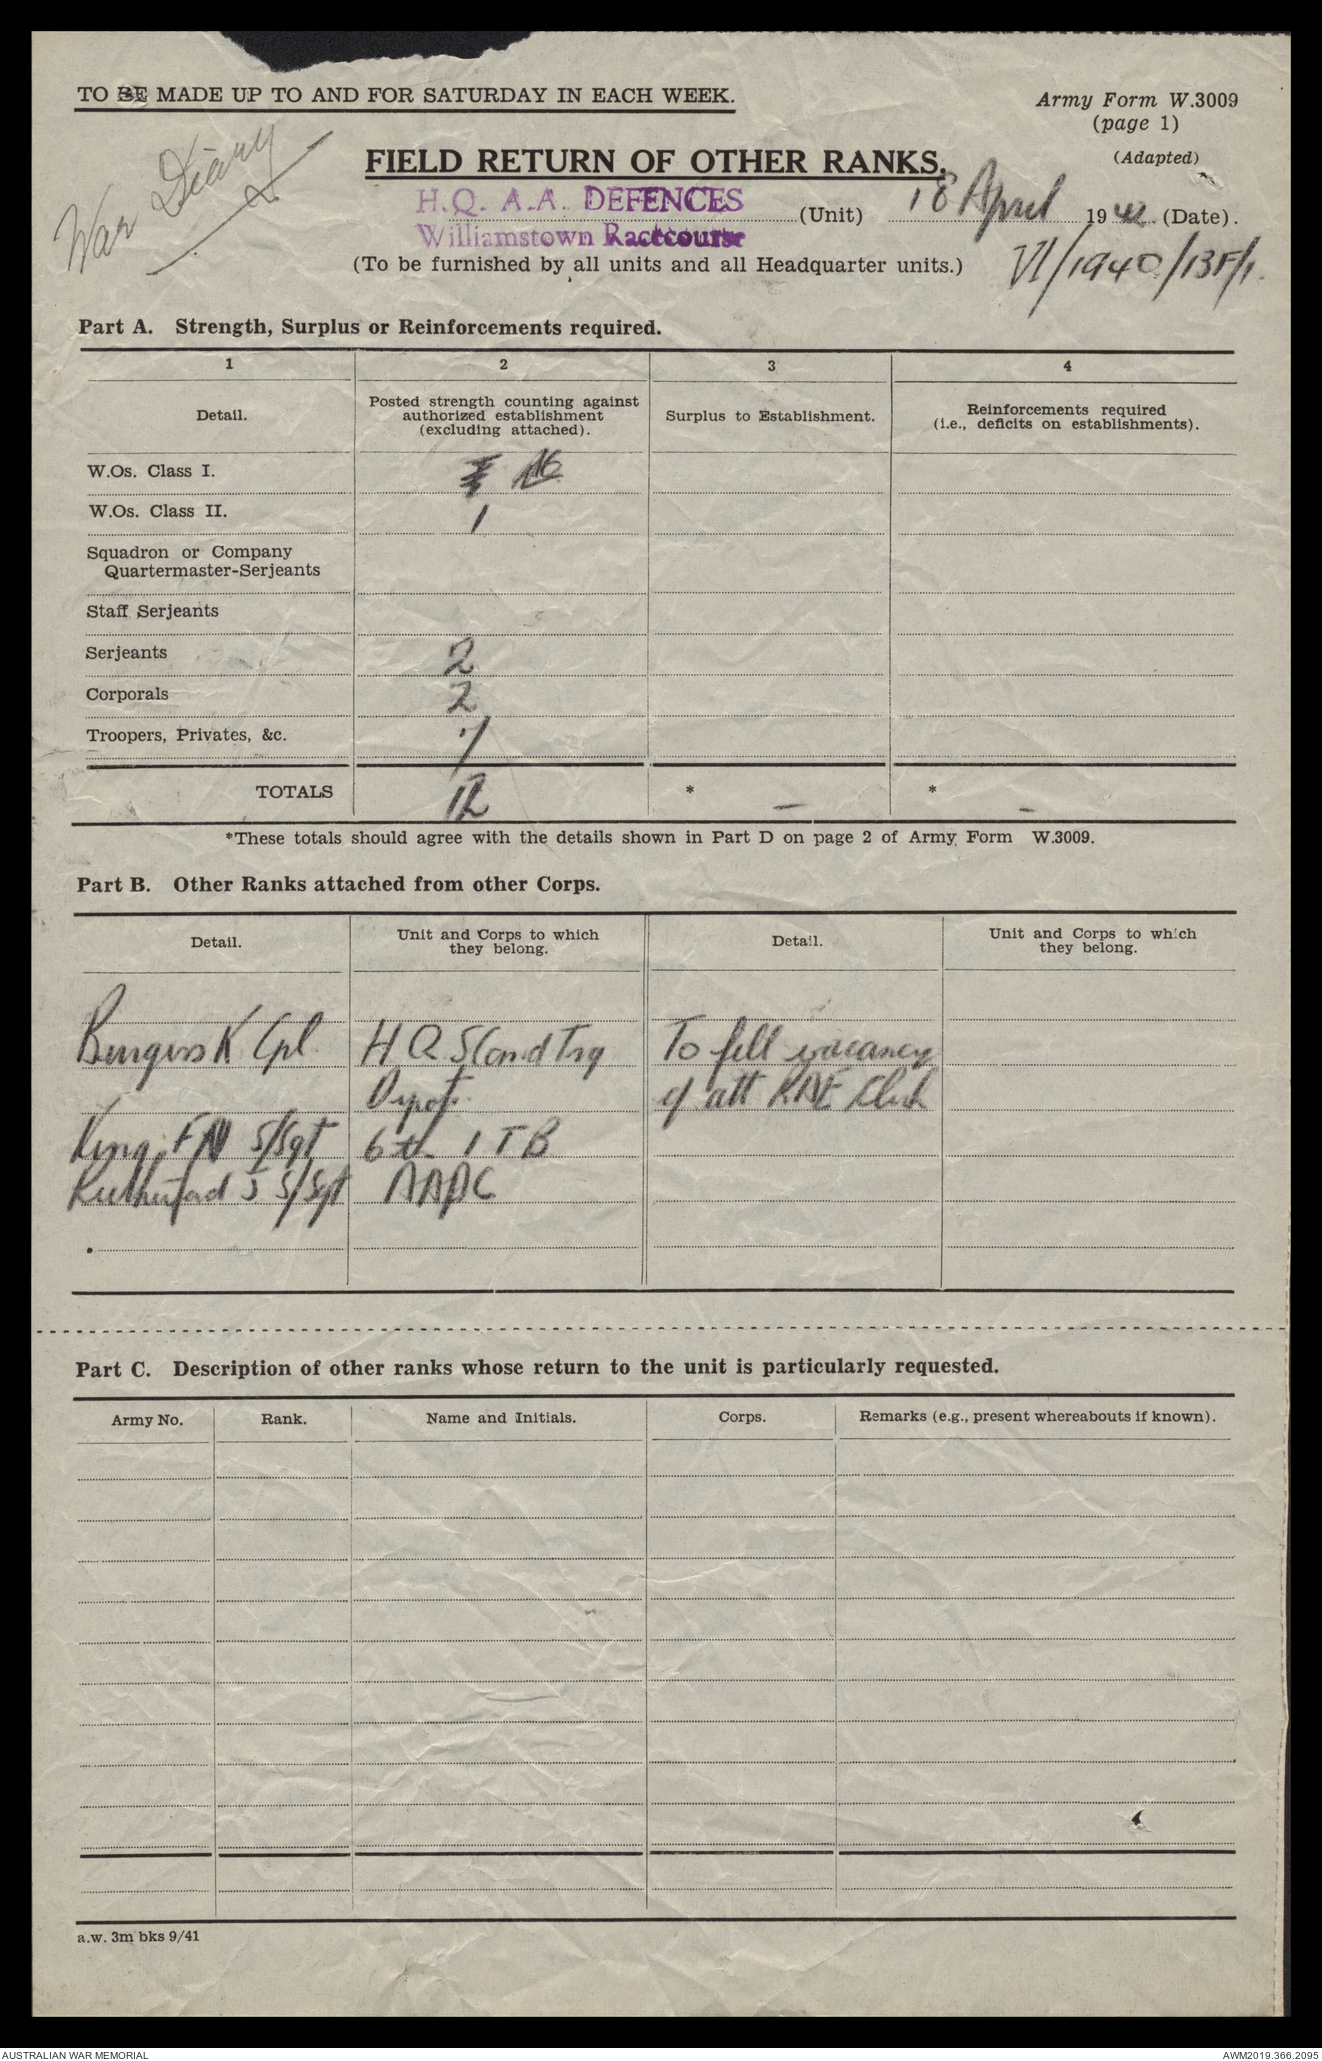 TO BE MADE UP TO AND FOR SATURDAY IN EACH WEEK.
Army Form W.3009
(page 1)
(Adapted)
War Diary
FIELD RETURN OF OTHER RANKS.
H.Q. A.A. DEFENCES
Williamstown Racecourse
(Unit) 18 April 1942 (Date).
(To be furnished by all units and all Headquarter units.)
VI/1940/13F/1.
Part A. Strength, Surplus or Reinforcements required.
1 2 3 4
Detail.
Posted strength counting against
authorized establishment
(excluding attached).
Surplus to Establishment.
Reinforcements required
(i.e., deficits on establishments).
W.Os. Class I.
W.Os. Class II. 1
Squadron or Company
Quartermaster-Serjeants
Staff Serjeants
Serjeants 2
Corporals 2
Troopers, Privates, &c. 7
TOTALS 12 * — * —
*These totals should agree with the details shown in Part D on page 2 of Army Form W.3009.
Part B. Other Ranks attached from other Corps.
Detail.
Unit and Corps to which
they belong.
Detail.
Unit and Corps to which
they belong.
Burgess K Cpl H Q S Comd Trg To fill vacancy
Depot. of att RAE Clerk
King, F N S/Sgt 6th I T B
Rutherford J S/Sgt AAPC
Part C. Description of other ranks whose return to the unit is particularly requested.
Army No. Rank. Name and Initials. Corps. Remarks (e.g., present whereabouts if known).
a.w. 3m bks 9/41
AUSTRALIAN WAR MEMORIAL
AWM2019.366.2095